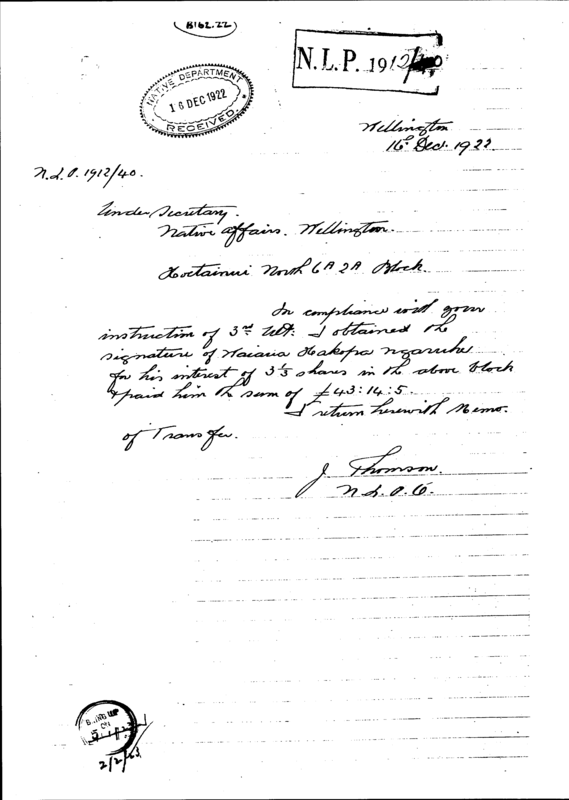 B162.22
N.L.P. 1912/40
NATIVE DEPARTMENT
16 DEC 1922
RECEIVED
Wellington
16th Dec. 1922.
N.L.P. 1912/40.
Under Secretary.
Native Affairs. Wellington.
Hoetainui North 6A 2A Block.
In compliance with your
instruction of 3rd Ult: I obtained the
signature of Hakopa Ngaruhe
for his interest of 3⅓ shares in the above block
& paid him the sum of £43:14:5.
I return herewith Memo.
of Transfer.
J. Thomson.
N.L.P.O.
BRING UP
ON
2/2/23